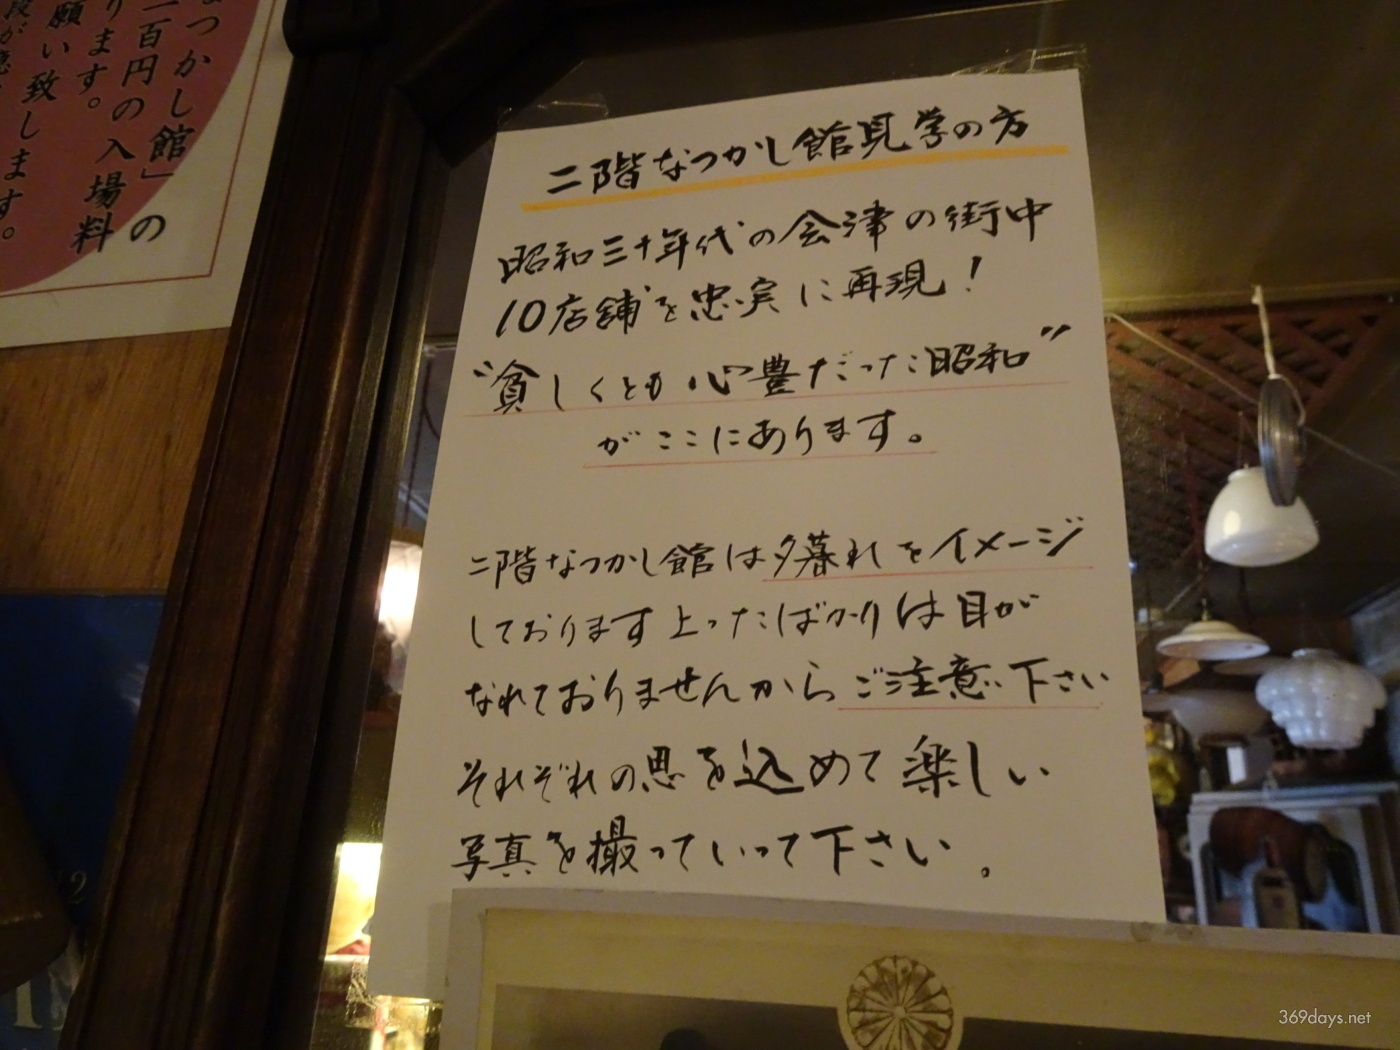 なつかし館」の
二百円の入場料
願い致します。
二階なつかし館見学の方
昭和三十年代の会津の街中
10店舗を忠実に再現！
"貧しくとも心豊だった昭和"
がここにあります。
二階なつかし館は夕暮れをイメージ
しております上ったばかりは目が
なれておりませんからご注意下さい
それぞれの思を込めて楽しい
写真を撮っていって下さい。
369days.net